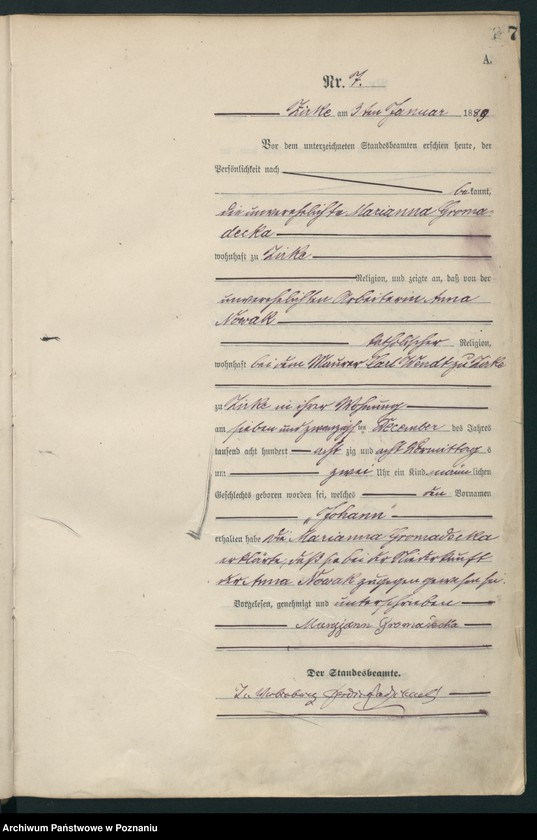 7
A.
Nr. 7.
Zirke am 3 ten Januar 1889
Vor dem unterzeichneten Standesbeamten erschien heute, der
Persönlichkeit nach
bekannt,
die unverehelichte Marianna Groma-
decka
wohnhaft zu Zirke
Religion, und zeigte an, daß von der
unverehelichten Arbeiterin Anna
Nowak
katholischer Religion,
wohnhaft bei dem Maurer Carl Wendt zu Zirke
zu Zirke in ihrer Wohnung
am sieben und zwanzigsten December des Jahres
tausend acht hundert acht zig und acht Vormittags
um zwei Uhr ein Kind männlichen
Geschlechts geboren worden sei, welches den Vornamen
"Johann"
erhalten habe die Marianna Gromadecka
erklärte, daß sie bei der Niederkunft
der Anna Nowak zugegen gewesen sei.
Vorgelesen, genehmigt und unterschrieben
Maryjann Gromadecka
Der Standesbeamte.
Archiwum Państwowe w Poznaniu